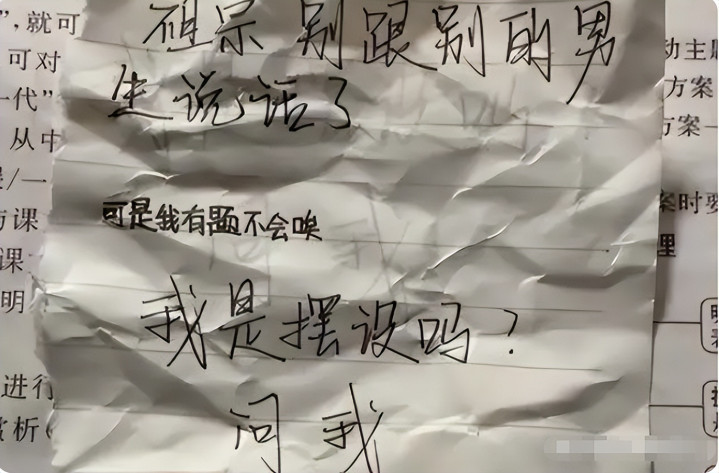 ”,就可
可对
一代”
从中
/一
课
课
明
进行
赏析(
祖宗 别跟别的男
生说话了
可是我有题不会唉
我是摆设吗?
问我
动主
方案
方案一
案时要
理